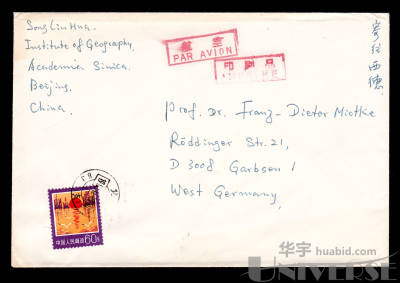 Song Lin Hua.
Institute of Geography,
Academia Sinica
Beijing,
China.
航空
PAR AVION
印刷品
寄往西德
Prof. Dr. Franz-Dieter Miotke
Röddinger Str. 21,
D 3008 Garbsen 1
West Germany,
中国人民邮政 60分
华宇 huabid.com
UNIVERSE